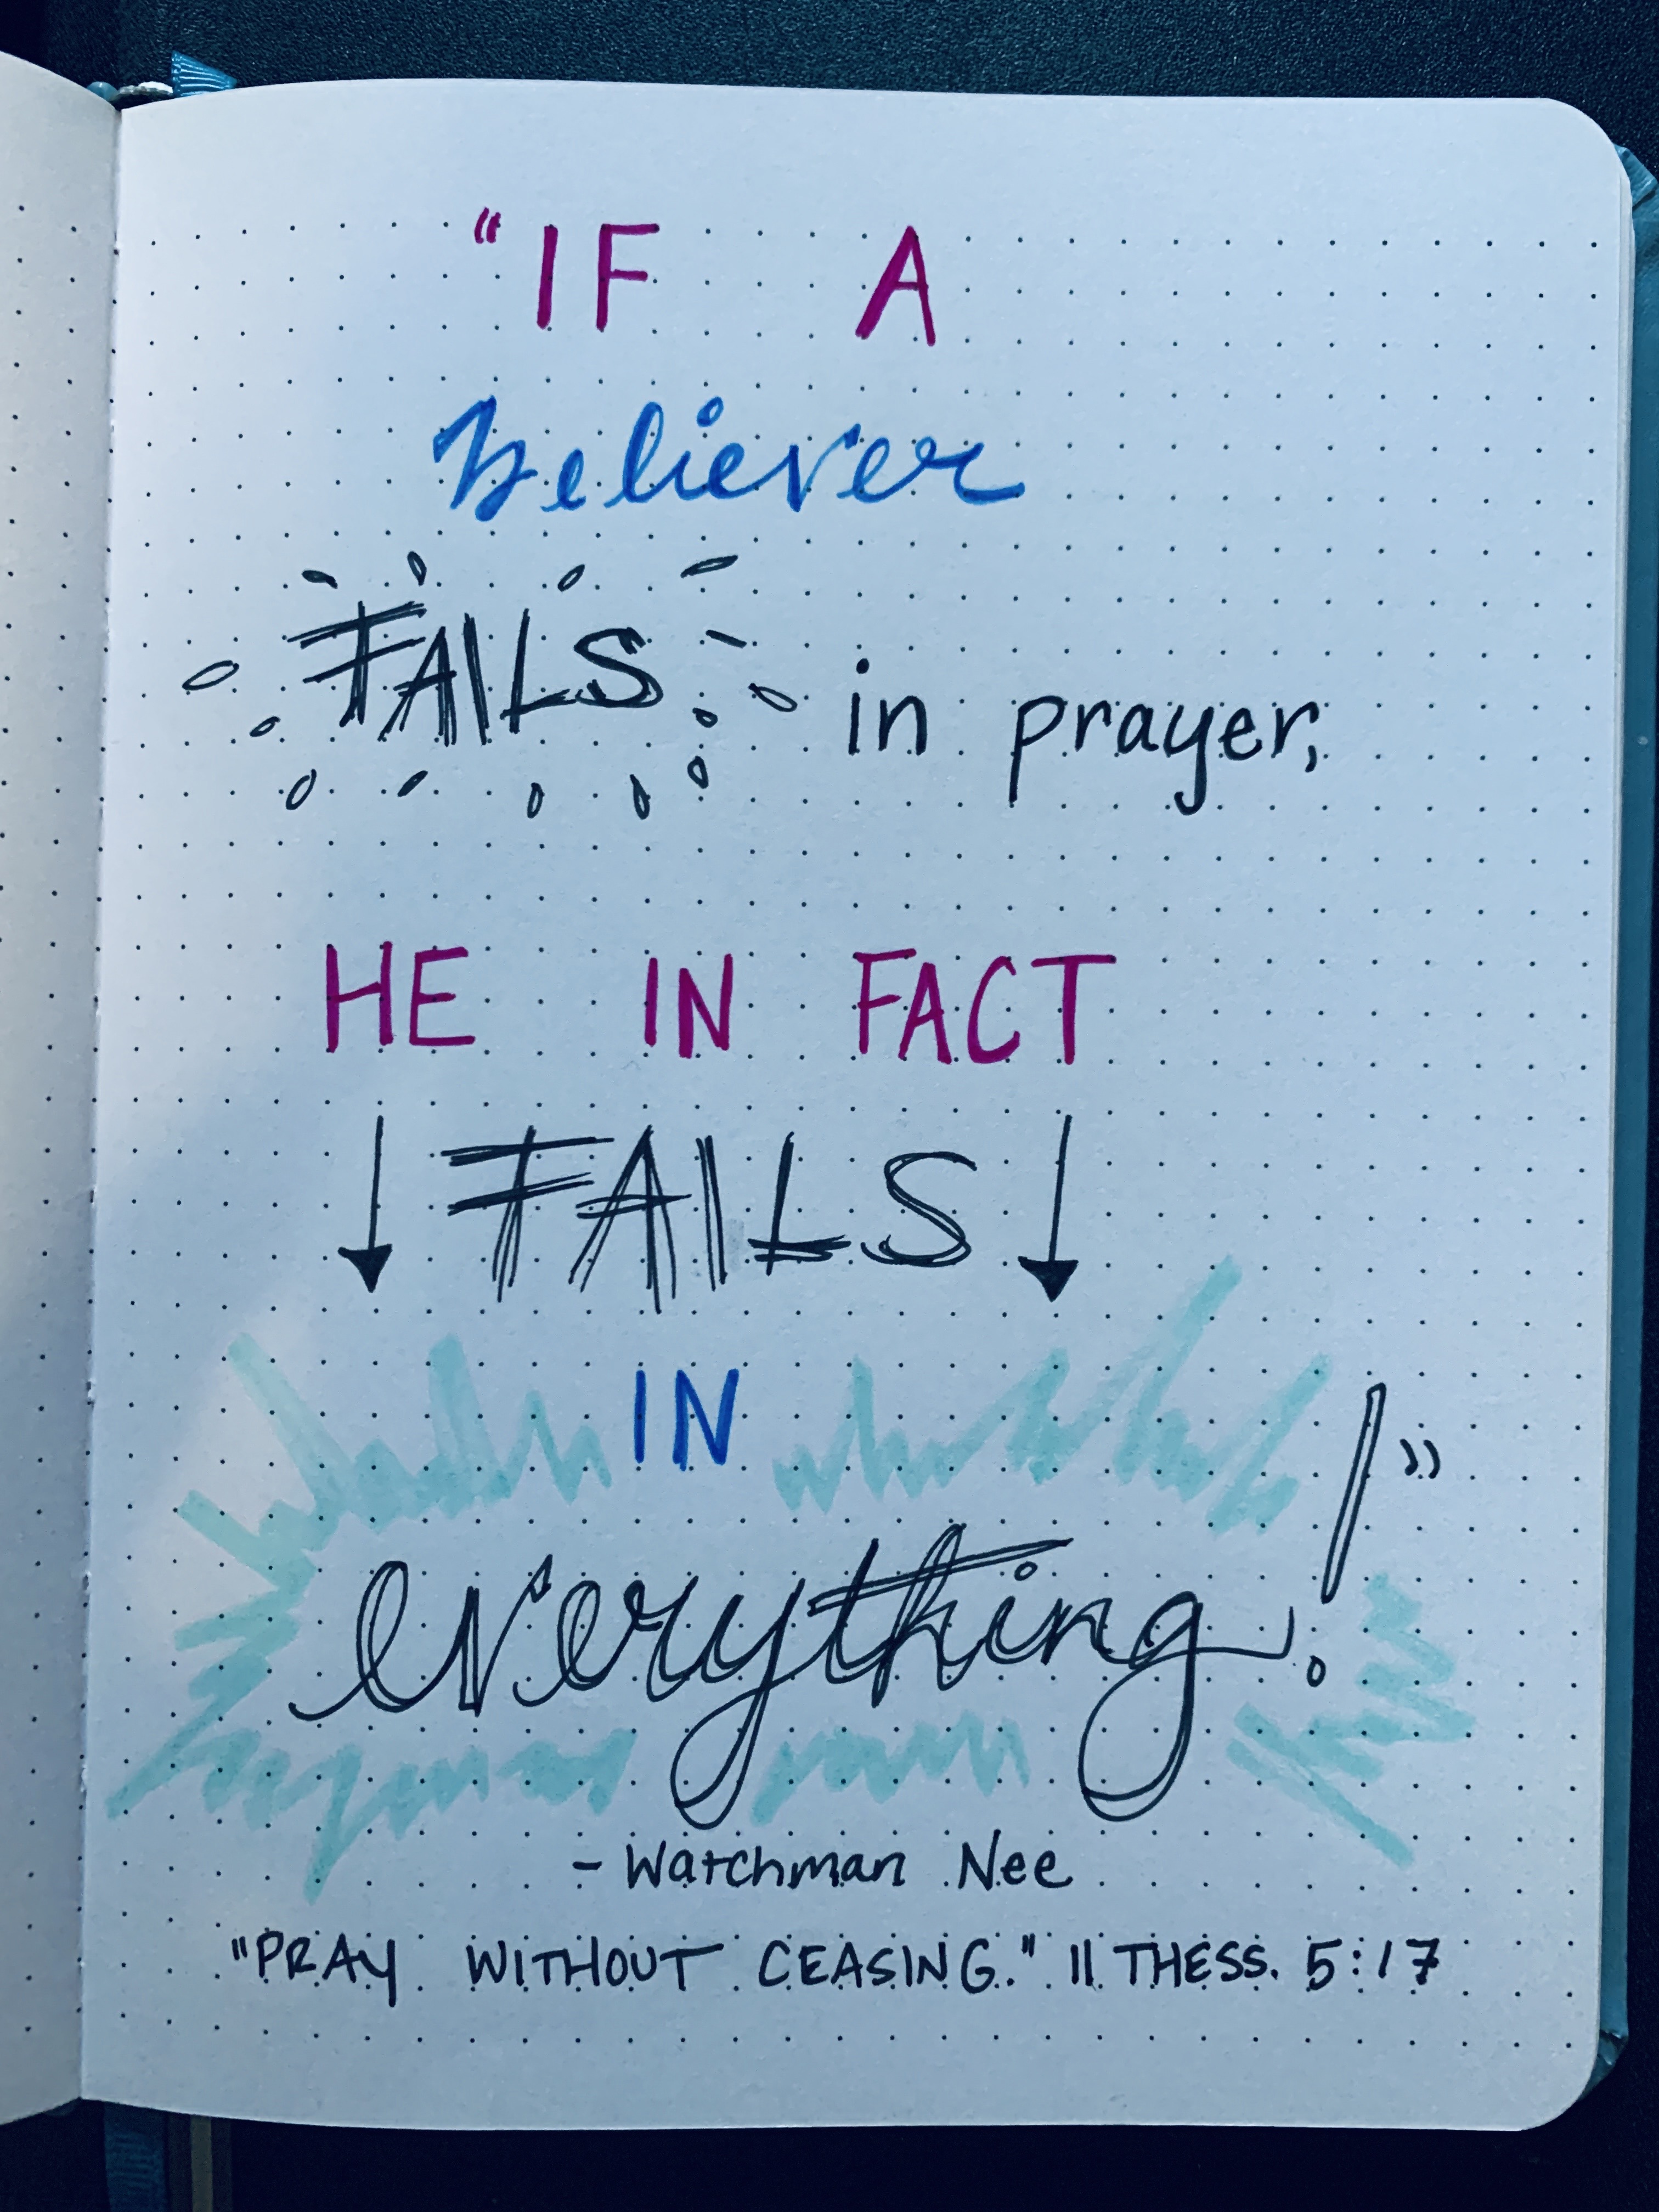 "IF A
believer
FAILS in prayer,
HE IN FACT
FAILS
IN
everything!"
- Watchman Nee
"PRAY WITHOUT CEASING." II THESS. 5:17